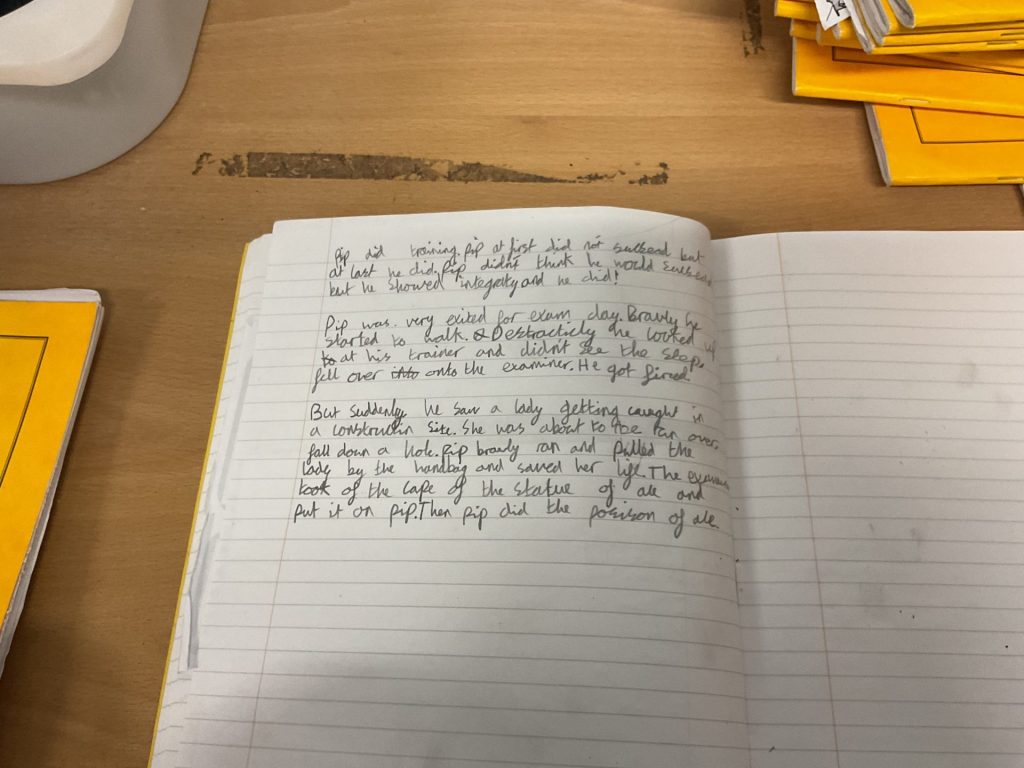 Pip did training. Pip at first did not sucseed but
at last he did. Pip didn't think he would sucseed
but he showed integrety and he did!
Pip was. very exited for exam day. Bravly he
started to walk. Destractidly he looked
to at his trainer and didn't see the step,
fell over into onto the examiner. He got fired
But suddenly he saw a lady getting caught in
a constructin site. She was about to be ran over,
fall down a hole. Pip bravly ran and pulled the
lady by the handbag and saved her life. The
took of the cape of the statue of ale and
put it on pip. Then pip did the posison of ale.